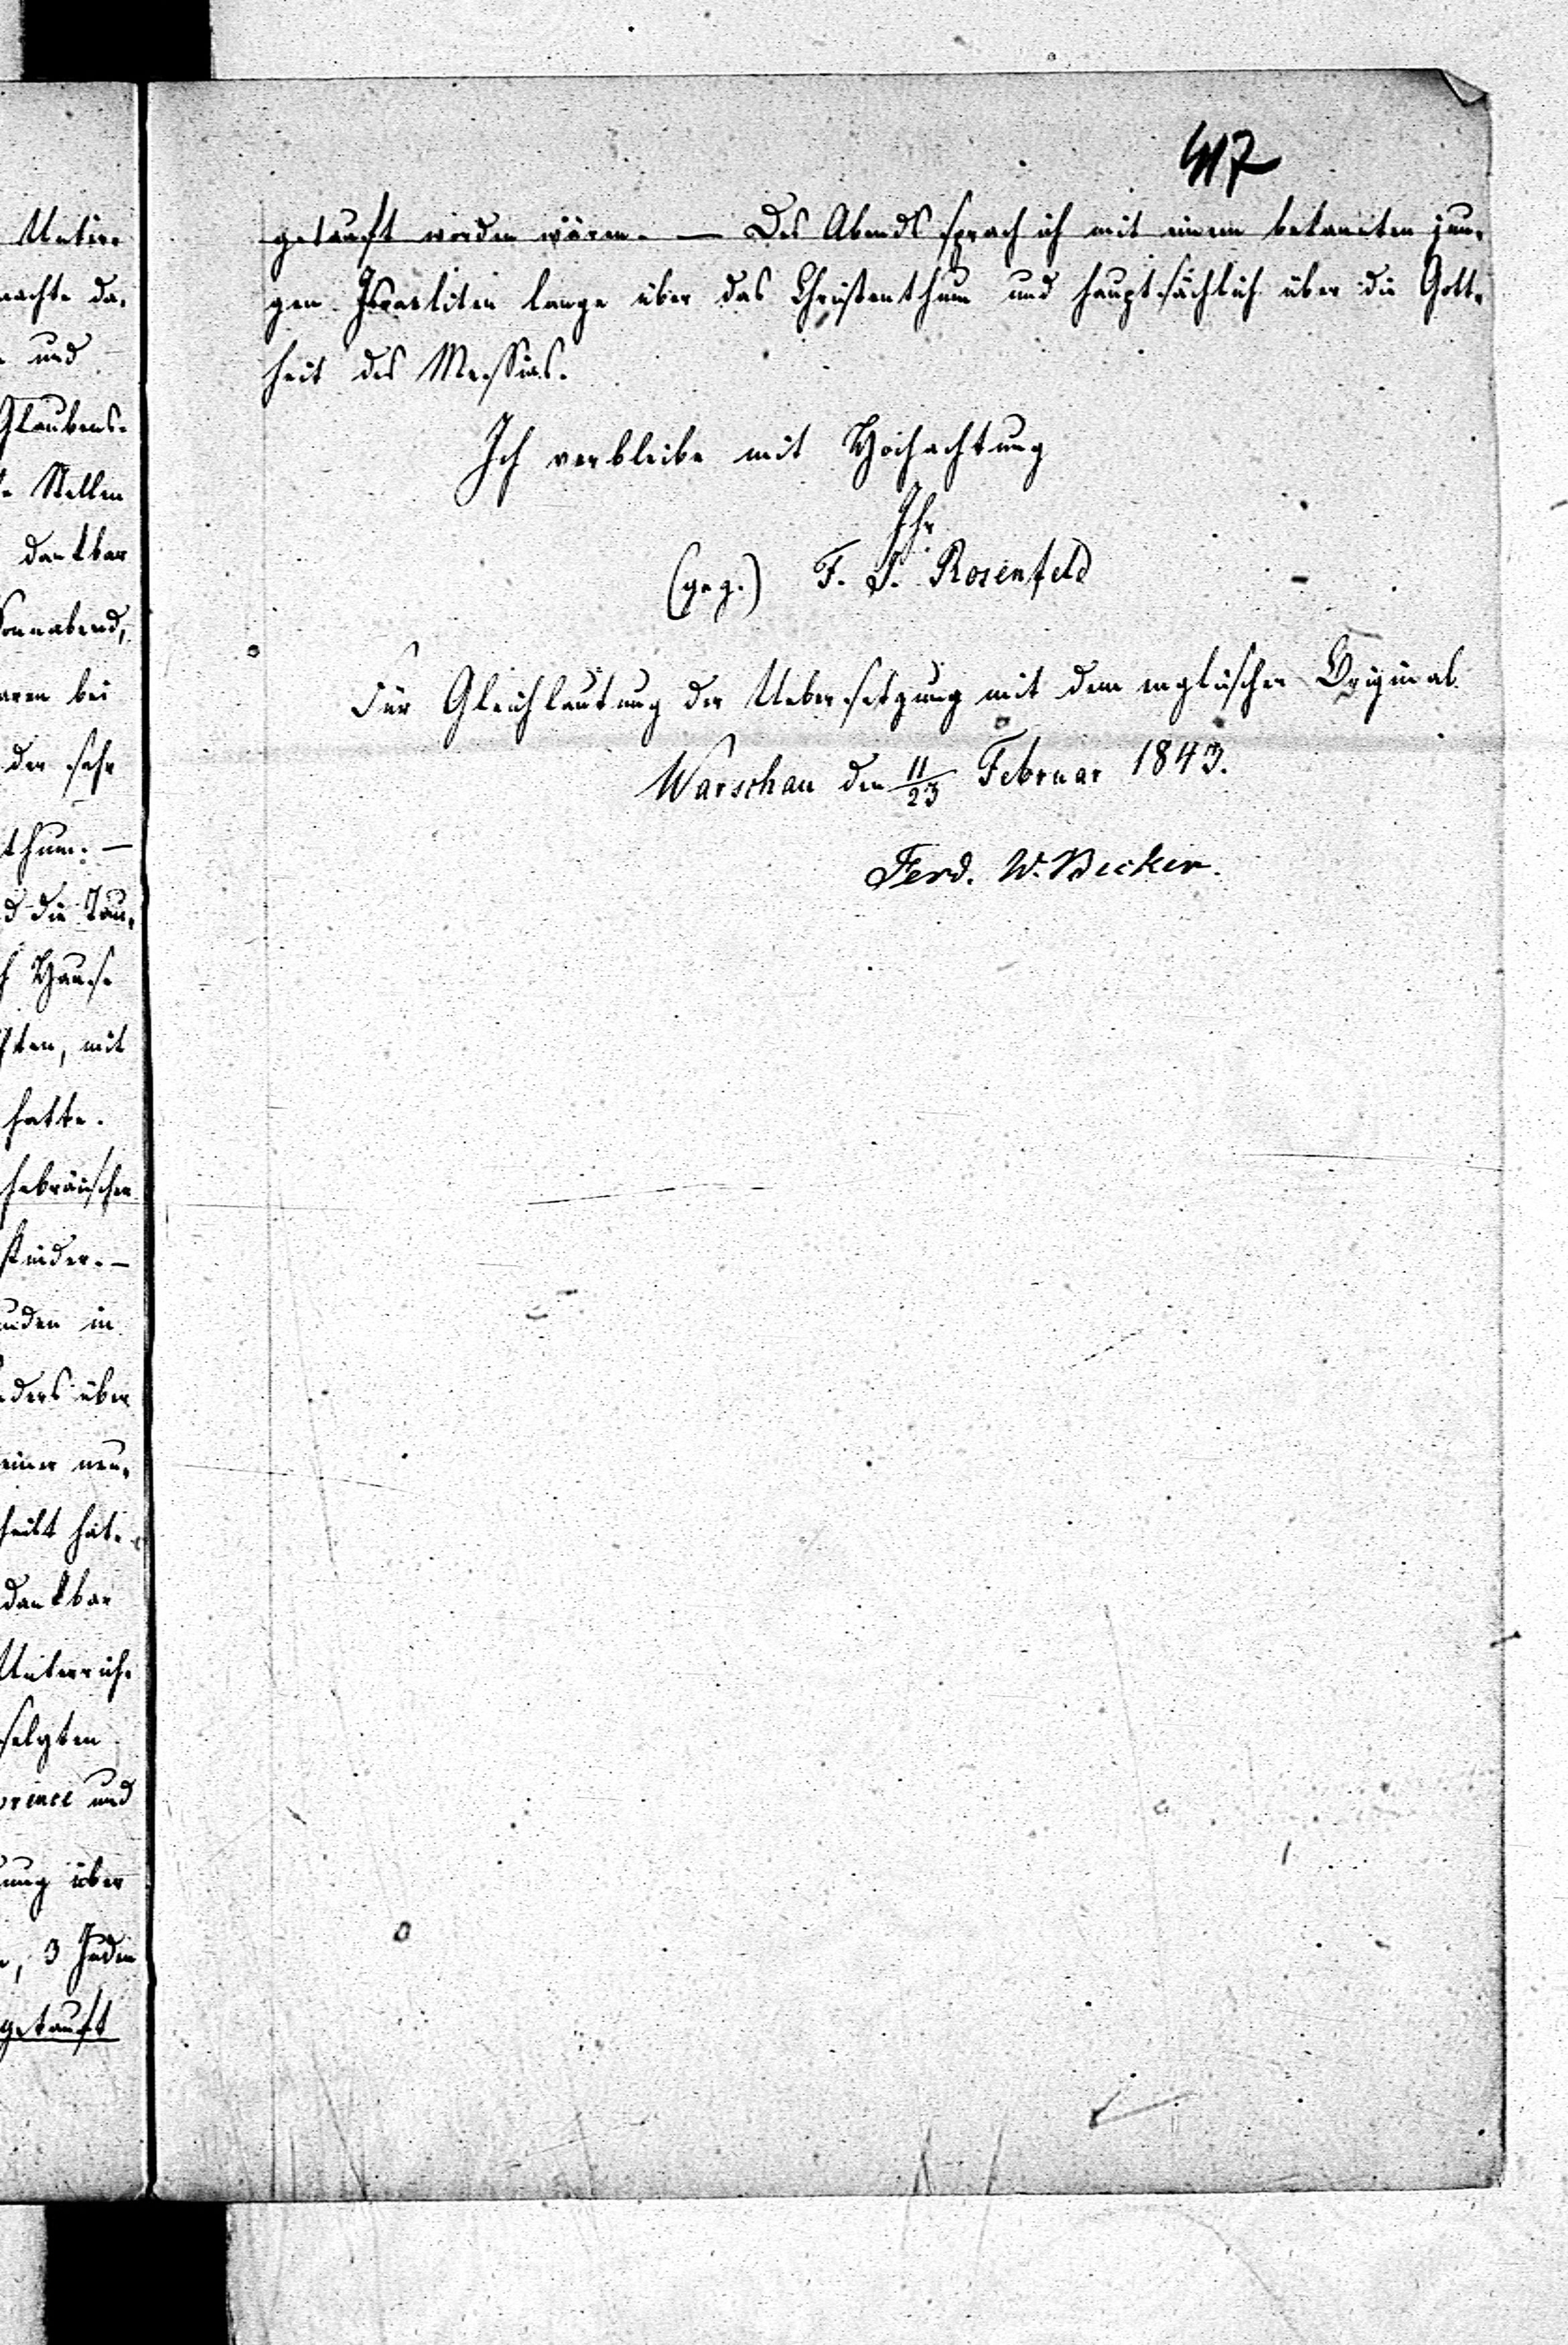 417
getauft worden wären. — Des Abends sprach ich mit einem bekannten jun-
gen Israeliten lange über das Christenthum und hauptsächlich über die Gott-
heit des Messias.
Ich verbleibe mit Hochachtung
Ihr
(gez.) F. S. Rosenfeld
Für Gleichlautung der Uebersetzung mit dem englischen Original.
Warschau den 11/23 Februar 1843.
Ferd. W. Becker.
machte da-
und
Glaubens-
Stellen
dankbar
Sonnabend,
waren bei
der sehr
thum. —
die Tau-
Hause
mit
hatte.
hebräischen
Kinder. —
in
über
einer neu-
dankbar
Unterrich-
und
über
3 Juden
getauft